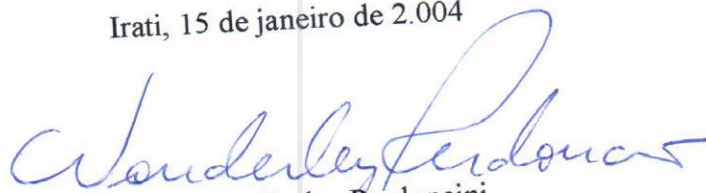 Irati, 15 de janeiro de 2.004
Wanderley Perdoncini